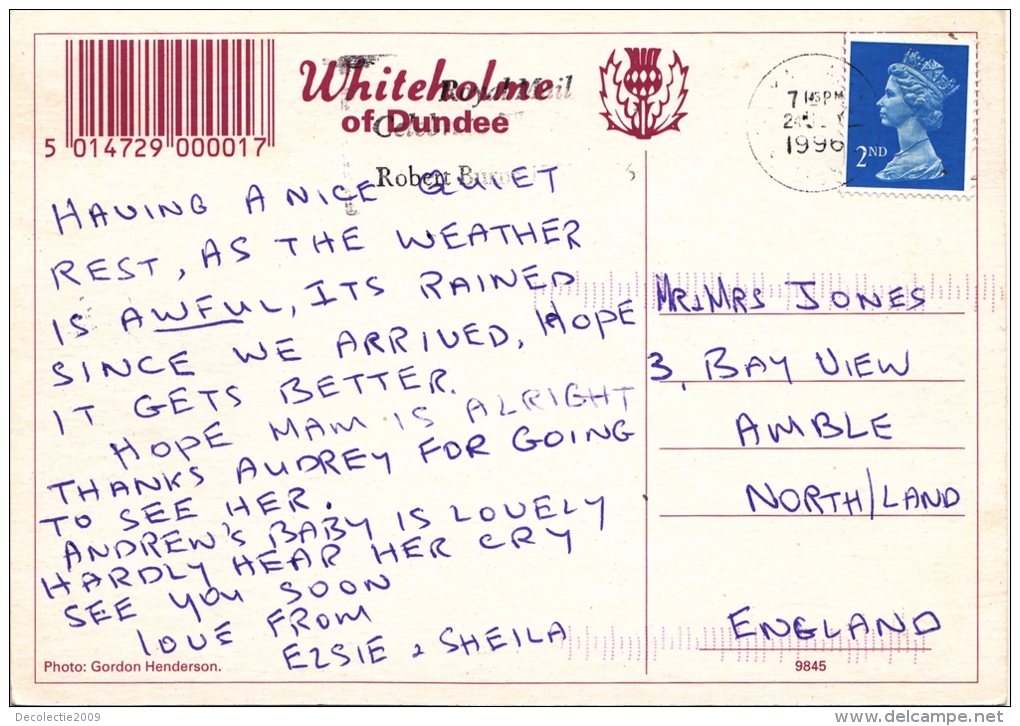 5 014729 000017
Whiteholme
of Dundee
Royal Mail
Robert
7 15PM
1996
2ND
HAVING A NICE QUIET
REST, AS THE WEATHER
IS AWFUL, ITS RAINED
SINCE WE ARRIVED, HOPE
IT GETS BETTER.
HOPE MAM IS ALRIGHT
THANKS AUDREY FOR GOING
TO SEE HER.
ANDREW'S BABY IS LOVELY
HARDLY HEAR HER CRY
SEE YOU SOON
LOVE FROM
ELSIE & SHEILA
Photo: Gordon Henderson.
MR & MRS JONES
3, BAY VIEW
AMBLE
NORTH/LAND
ENGLAND
9845
Decolectie2009
www.delcampe.net